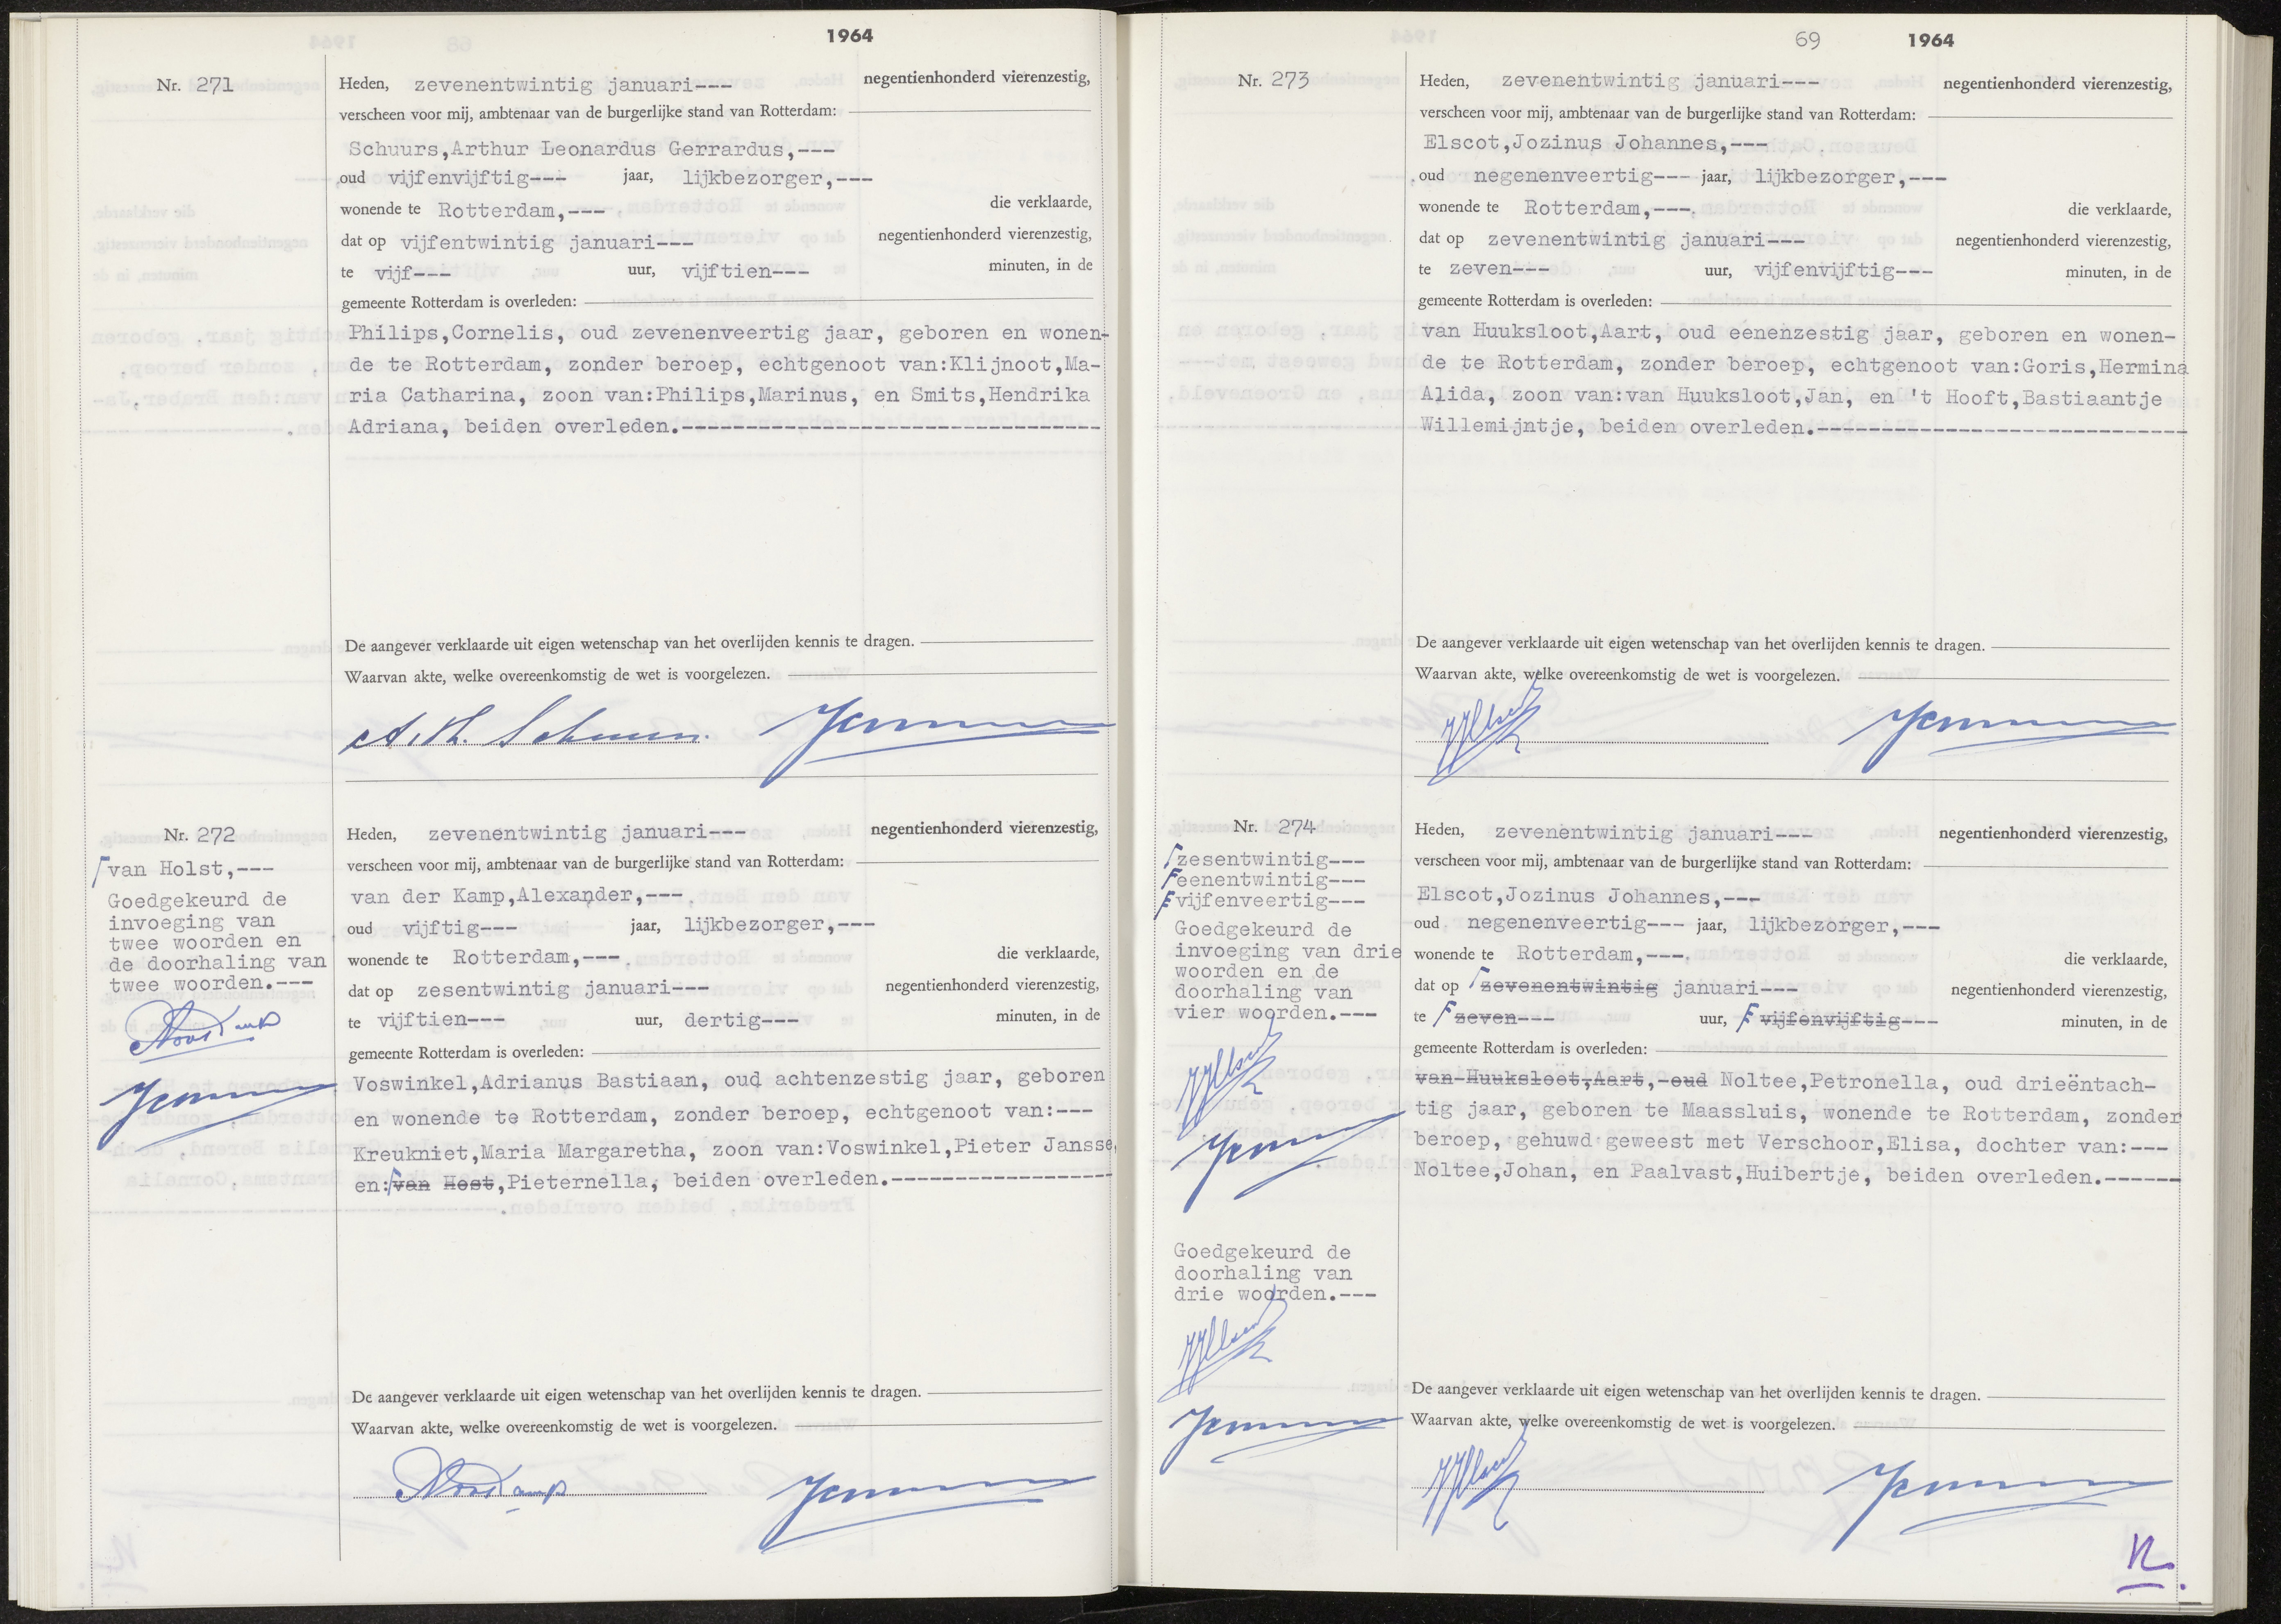 1964
Nr. 271
Heden, zevenentwintig januari--- negentienhonderd vierenzestig,
verscheen voor mij, ambtenaar van de burgerlijke stand van Rotterdam:
Schuurs,Arthur Leonardus Gerrardus,---
oud vijfenvijftig--- jaar, lijkbezorger,---
wonende te Rotterdam,--- die verklaarde,
dat op vijfentwintig januari--- negentienhonderd vierenzestig,
te vijf--- uur, vijftien--- minuten, in de
gemeente Rotterdam is overleden:
Philips,Cornelis, oud zevenenveertig jaar, geboren en wonen-
de te Rotterdam, zonder beroep, echtgenoot van:Klijnoot,Ma-
ria Catharina, zoon van:Philips,Marinus, en Smits,Hendrika
Adriana, beiden overleden.---
De aangever verklaarde uit eigen wetenschap van het overlijden kennis te dragen.
Waarvan akte, welke overeenkomstig de wet is voorgelezen.
Nr. 272
van Holst,---
Goedgekeurd de
invoeging van
twee woorden en
de doorhaling van
twee woorden.---
Heden, zevenentwintig januari--- negentienhonderd vierenzestig,
verscheen voor mij, ambtenaar van de burgerlijke stand van Rotterdam:
van der Kamp,Alexander,---
oud vijftig--- jaar, lijkbezorger,---
wonende te Rotterdam,--- die verklaarde,
dat op zesentwintig januari--- negentienhonderd vierenzestig,
te vijftien--- uur, dertig--- minuten, in de
gemeente Rotterdam is overleden:
Voswinkel,Adrianus Bastiaan, oud achtenzestig jaar, geboren
en wonende te Rotterdam, zonder beroep, echtgenoot van:---
Kreukniet,Maria Margaretha, zoon van:Voswinkel,Pieter Jansse,
en:van Host,Pieternella, beiden overleden.---
De aangever verklaarde uit eigen wetenschap van het overlijden kennis te dragen.
Waarvan akte, welke overeenkomstig de wet is voorgelezen.
69 1964
Nr. 273
Heden, zevenentwintig januari--- negentienhonderd vierenzestig,
verscheen voor mij, ambtenaar van de burgerlijke stand van Rotterdam:
Elscot,Jozinus Johannes,---
oud negenenveertig--- jaar, lijkbezorger,---
wonende te Rotterdam,--- die verklaarde,
dat op zevenentwintig januari--- negentienhonderd vierenzestig,
te zeven--- uur, vijfenvijftig--- minuten, in de
gemeente Rotterdam is overleden:
van Huuksloot,Aart, oud eenenzestig jaar, geboren en wonen-
de te Rotterdam, zonder beroep, echtgenoot van:Goris,Hermina
Alida, zoon van:van Huuksloot,Jan, en 't Hooft,Bastiaantje
Willemijntje, beiden overleden.---
De aangever verklaarde uit eigen wetenschap van het overlijden kennis te dragen.
Waarvan akte, welke overeenkomstig de wet is voorgelezen.
Nr. 274
zesentwintig---
eenentwintig---
vijfenveertig---
Goedgekeurd de
invoeging van drie
woorden en de
doorhaling van
vier woorden.---
Goedgekeurd de
doorhaling van
drie woorden.---
Heden, zevenentwintig januari--- negentienhonderd vierenzestig,
verscheen voor mij, ambtenaar van de burgerlijke stand van Rotterdam:
Elscot,Jozinus Johannes,---
oud negenenveertig--- jaar, lijkbezorger,---
wonende te Rotterdam,--- die verklaarde,
dat op zevenentwintig januari--- negentienhonderd vierenzestig,
te zeven--- uur, vijfenvijftig--- minuten, in de
gemeente Rotterdam is overleden:
van Huuksloot,Aart, oud Noltee,Petronella, oud drieëntach-
tig jaar, geboren te Maassluis, wonende te Rotterdam, zonder
beroep, gehuwd geweest met Verschoor,Elisa, dochter van:---
Noltee,Johan, en Paalvast,Huibertje, beiden overleden.---
De aangever verklaarde uit eigen wetenschap van het overlijden kennis te dragen.
Waarvan akte, welke overeenkomstig de wet is voorgelezen.